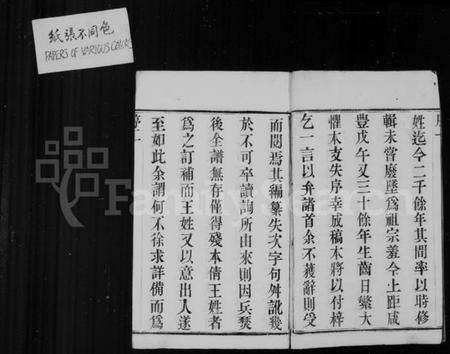 紙張不同色
PAPERS OF VARIOUS COLORS
序一
姓迄今二千餘年其間率以時修
輯未嘗廢墜為祖宗羞今上距咸
豐戊午又三十餘年生齒日繁大
懼本支失序幸成稿本將以付梓
乞一言以弁諸首余不獲辭則受
而閱焉其編纂失次字句舛訛幾
於不可卒讀詢所由來則因兵燹
後全譜無存僅得殘本倩王姓者
為之訂補而王姓又以意出入遂
至如此余謂何不徐求詳備而為
序二
FamilySearch